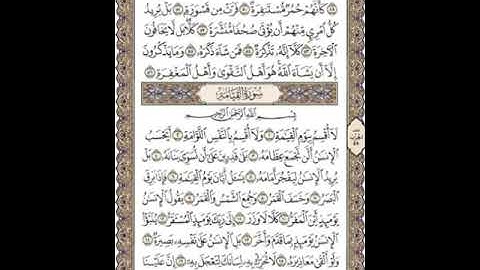 كَأَنَّهُمْ حُمُرٌ مُّسْتَنفِرَةٌ ۝٥٠ فَرَّتْ مِن قَسْوَرَةٍ ۝٥١ بَلْ يُرِيدُ
كُلُّ امْرِئٍ مِّنْهُمْ أَن يُؤْتَىٰ صُحُفًا مُّنَشَّرَةً ۝٥٢ كَلَّا بَل لَّا يَخَافُونَ
الْآخِرَةَ ۝٥٣ كَلَّا إِنَّهُ تَذْكِرَةٌ ۝٥٤ فَمَن شَاءَ ذَكَرَهُ ۝٥٥ وَمَا يَذْكُرُونَ
إِلَّا أَن يَشَاءَ اللَّهُ هُوَ أَهْلُ التَّقْوَىٰ وَأَهْلُ الْمَغْفِرَةِ ۝٥٦
سُورَةُ القِيَامَةِ
بِسْمِ اللَّهِ الرَّحْمَٰنِ الرَّحِيمِ
لَا أُقْسِمُ بِيَوْمِ الْقِيَامَةِ ۝١ وَلَا أُقْسِمُ بِالنَّفْسِ اللَّوَّامَةِ ۝٢ أَيَحْسَبُ
الْإِنسَانُ أَلَّن نَّجْمَعَ عِظَامَهُ ۝٣ بَلَىٰ قَادِرِينَ عَلَىٰ أَن نُّسَوِّيَ بَنَانَهُ ۝٤ بَلْ
يُرِيدُ الْإِنسَانُ لِيَفْجُرَ أَمَامَهُ ۝٥ يَسْأَلُ أَيَّانَ يَوْمُ الْقِيَامَةِ ۝٦ فَإِذَا بَرِقَ
الْبَصَرُ ۝٧ وَخَسَفَ الْقَمَرُ ۝٨ وَجُمِعَ الشَّمْسُ وَالْقَمَرُ ۝٩ يَقُولُ الْإِنسَانُ
يَوْمَئِذٍ أَيْنَ الْمَفَرُّ ۝١٠ كَلَّا لَا وَزَرَ ۝١١ إِلَىٰ رَبِّكَ يَوْمَئِذٍ الْمُسْتَقَرُّ ۝١٢ يُنَبَّأُ
الْإِنسَانُ يَوْمَئِذٍ بِمَا قَدَّمَ وَأَخَّرَ ۝١٣ بَلِ الْإِنسَانُ عَلَىٰ نَفْسِهِ بَصِيرَةٌ ۝١٤
وَلَوْ أَلْقَىٰ مَعَاذِيرَهُ ۝١٥ لَا تُحَرِّكْ بِهِ لِسَانَكَ لِتَعْجَلَ بِهِ ۝١٦ إِنَّ عَلَيْنَا